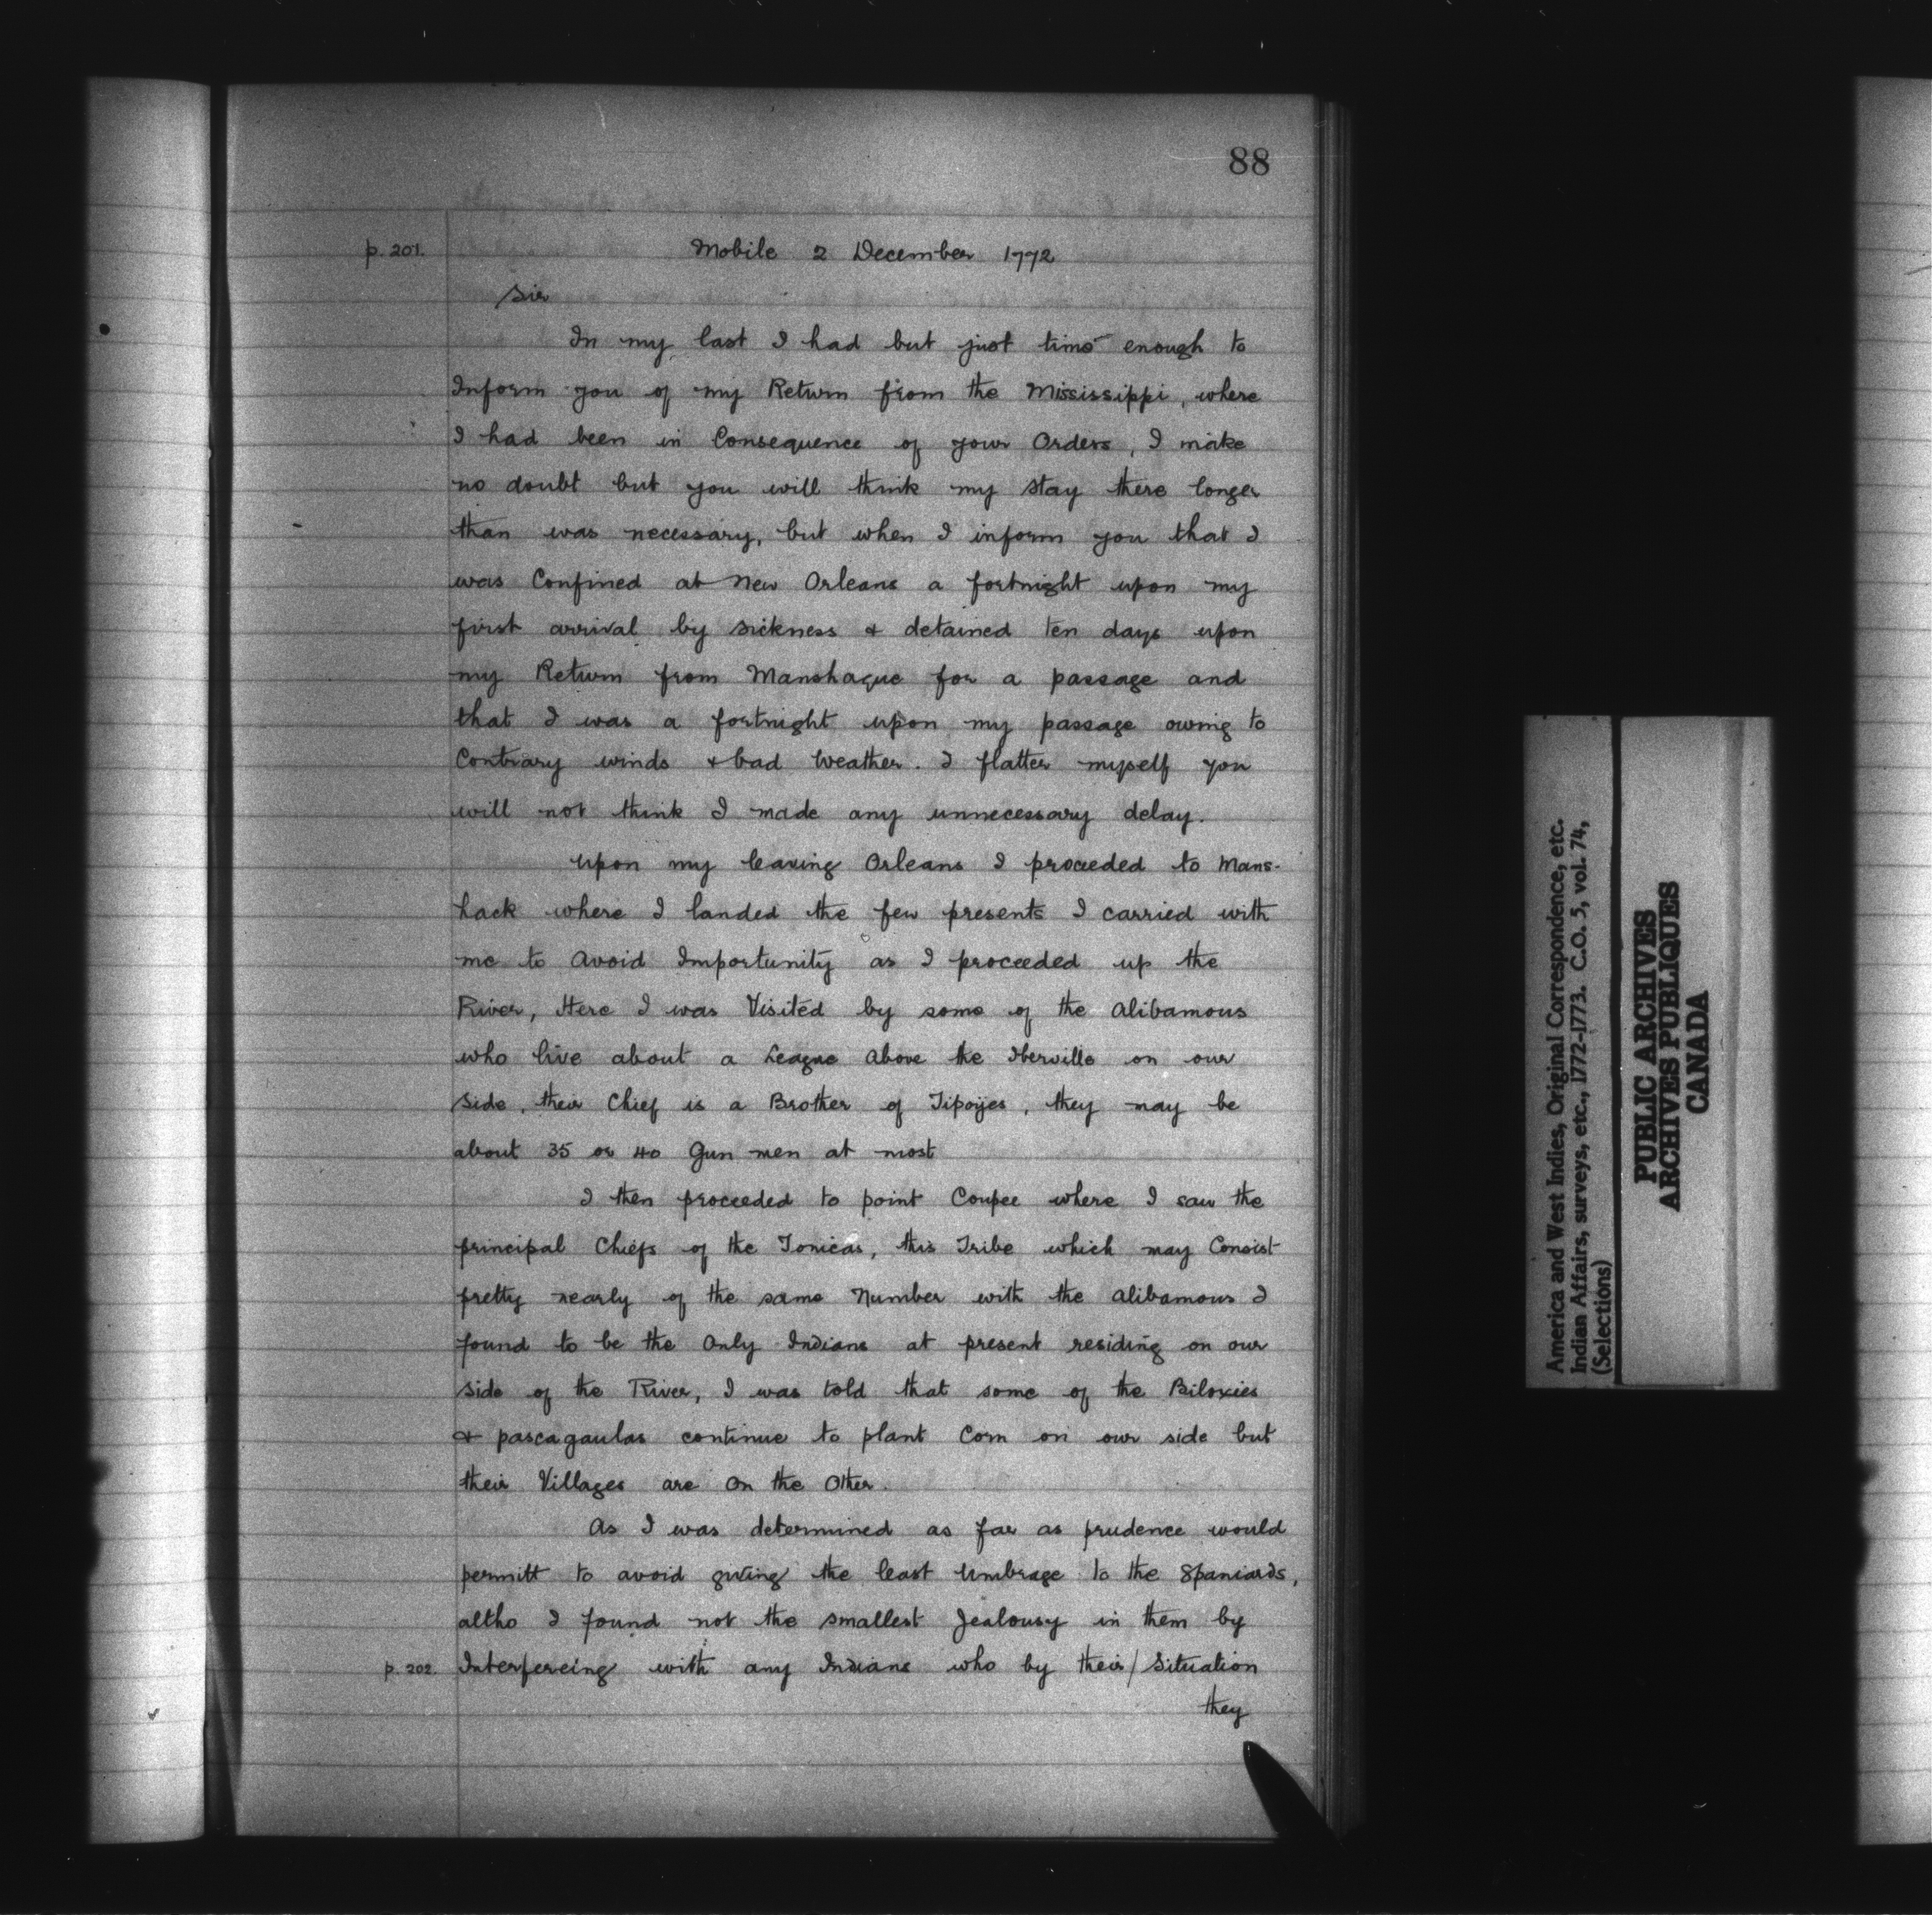 88
p. 201. Mobile 2 December 1772
Sir
In my last I had but just time enough to
Inform you of my Return from the Mississippi, where
I had been in Consequence of your Orders, I make
no doubt but you will think my stay there longer
than was necessary, but when I inform you that I
was Confined at New Orleans a fortnight upon my
first arrival by sickness & detained ten days upon
my Return from Manshaque for a passage and
that I was a fortnight upon my passage owing to
Contrary winds & bad Weather. I flatter myself you
will not think I made any unnecessary delay.
Upon my leaving Orleans I proceeded to Mans-
hack where I landed the few presents I carried with
me to avoid Importunity as I proceeded up the
River, Here I was Visited by some of the Alibamous
who live about a League above the Iberville on our
side, their Chief is a Brother of Tipoyes, they may be
about 35 or 40 Gun men at most
I then proceeded to point Coupee where I saw the
principal Chiefs of the Tonicas, this Tribe which may Consist
pretty nearly of the same Number with the Alibamous I
found to be the Only Indians at present residing on our
side of the River, I was told that some of the Biloxies
& pascagaulas continue to plant Corn on our side but
their Villages are on the Other.
As I was determined as far as prudence would
permitt to avoid giving the least Umbrage to the Spaniards,
altho I found not the smallest Jealousy in them by
p. 202. Interfereing with any Indians who by their/Situation
they
America and West Indies, Original Correspondence, etc.
Indian Affairs, surveys, etc., 1772-1773. C.O. 5, vol. 74,
(Selections)
PUBLIC ARCHIVES
ARCHIVES PUBLIQUES
CANADA